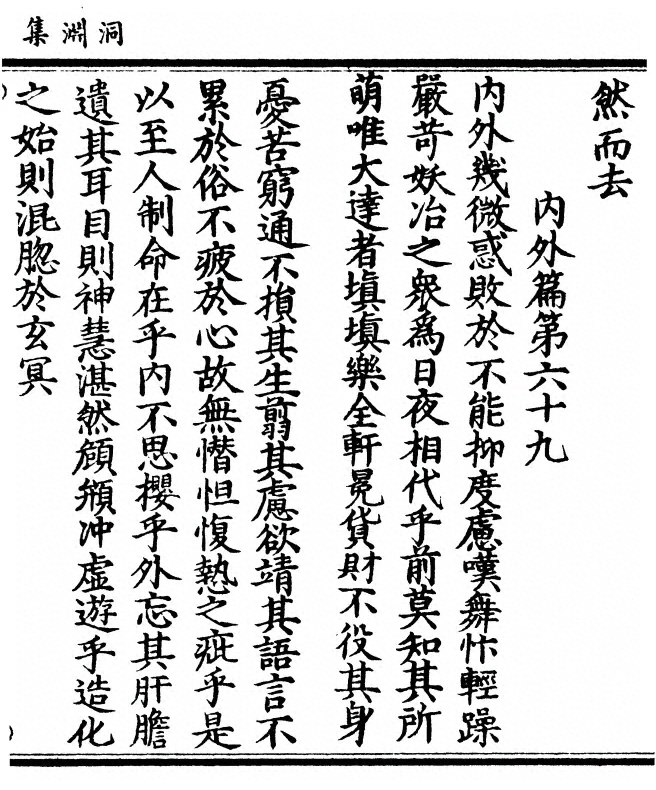 洞淵集
然而去
內外篇第六十九
內外幾微惑敗於不能抑度慮嘆舞忭輕躁
嚴苛妖冶之衆為日夜相代乎前莫知其所
萌唯大達者塡塡樂全軒冕貨財不役其身
憂苦窮通不損其生翦其慮欲靖其語言不
累於俗不疲於心故無憯怛愎熱之疵乎是
以至人制命在乎內不思攖乎外忘其肝膽
遺其耳目則神慧湛然頠頯冲虛遊乎造化
之始則混脗於玄冥